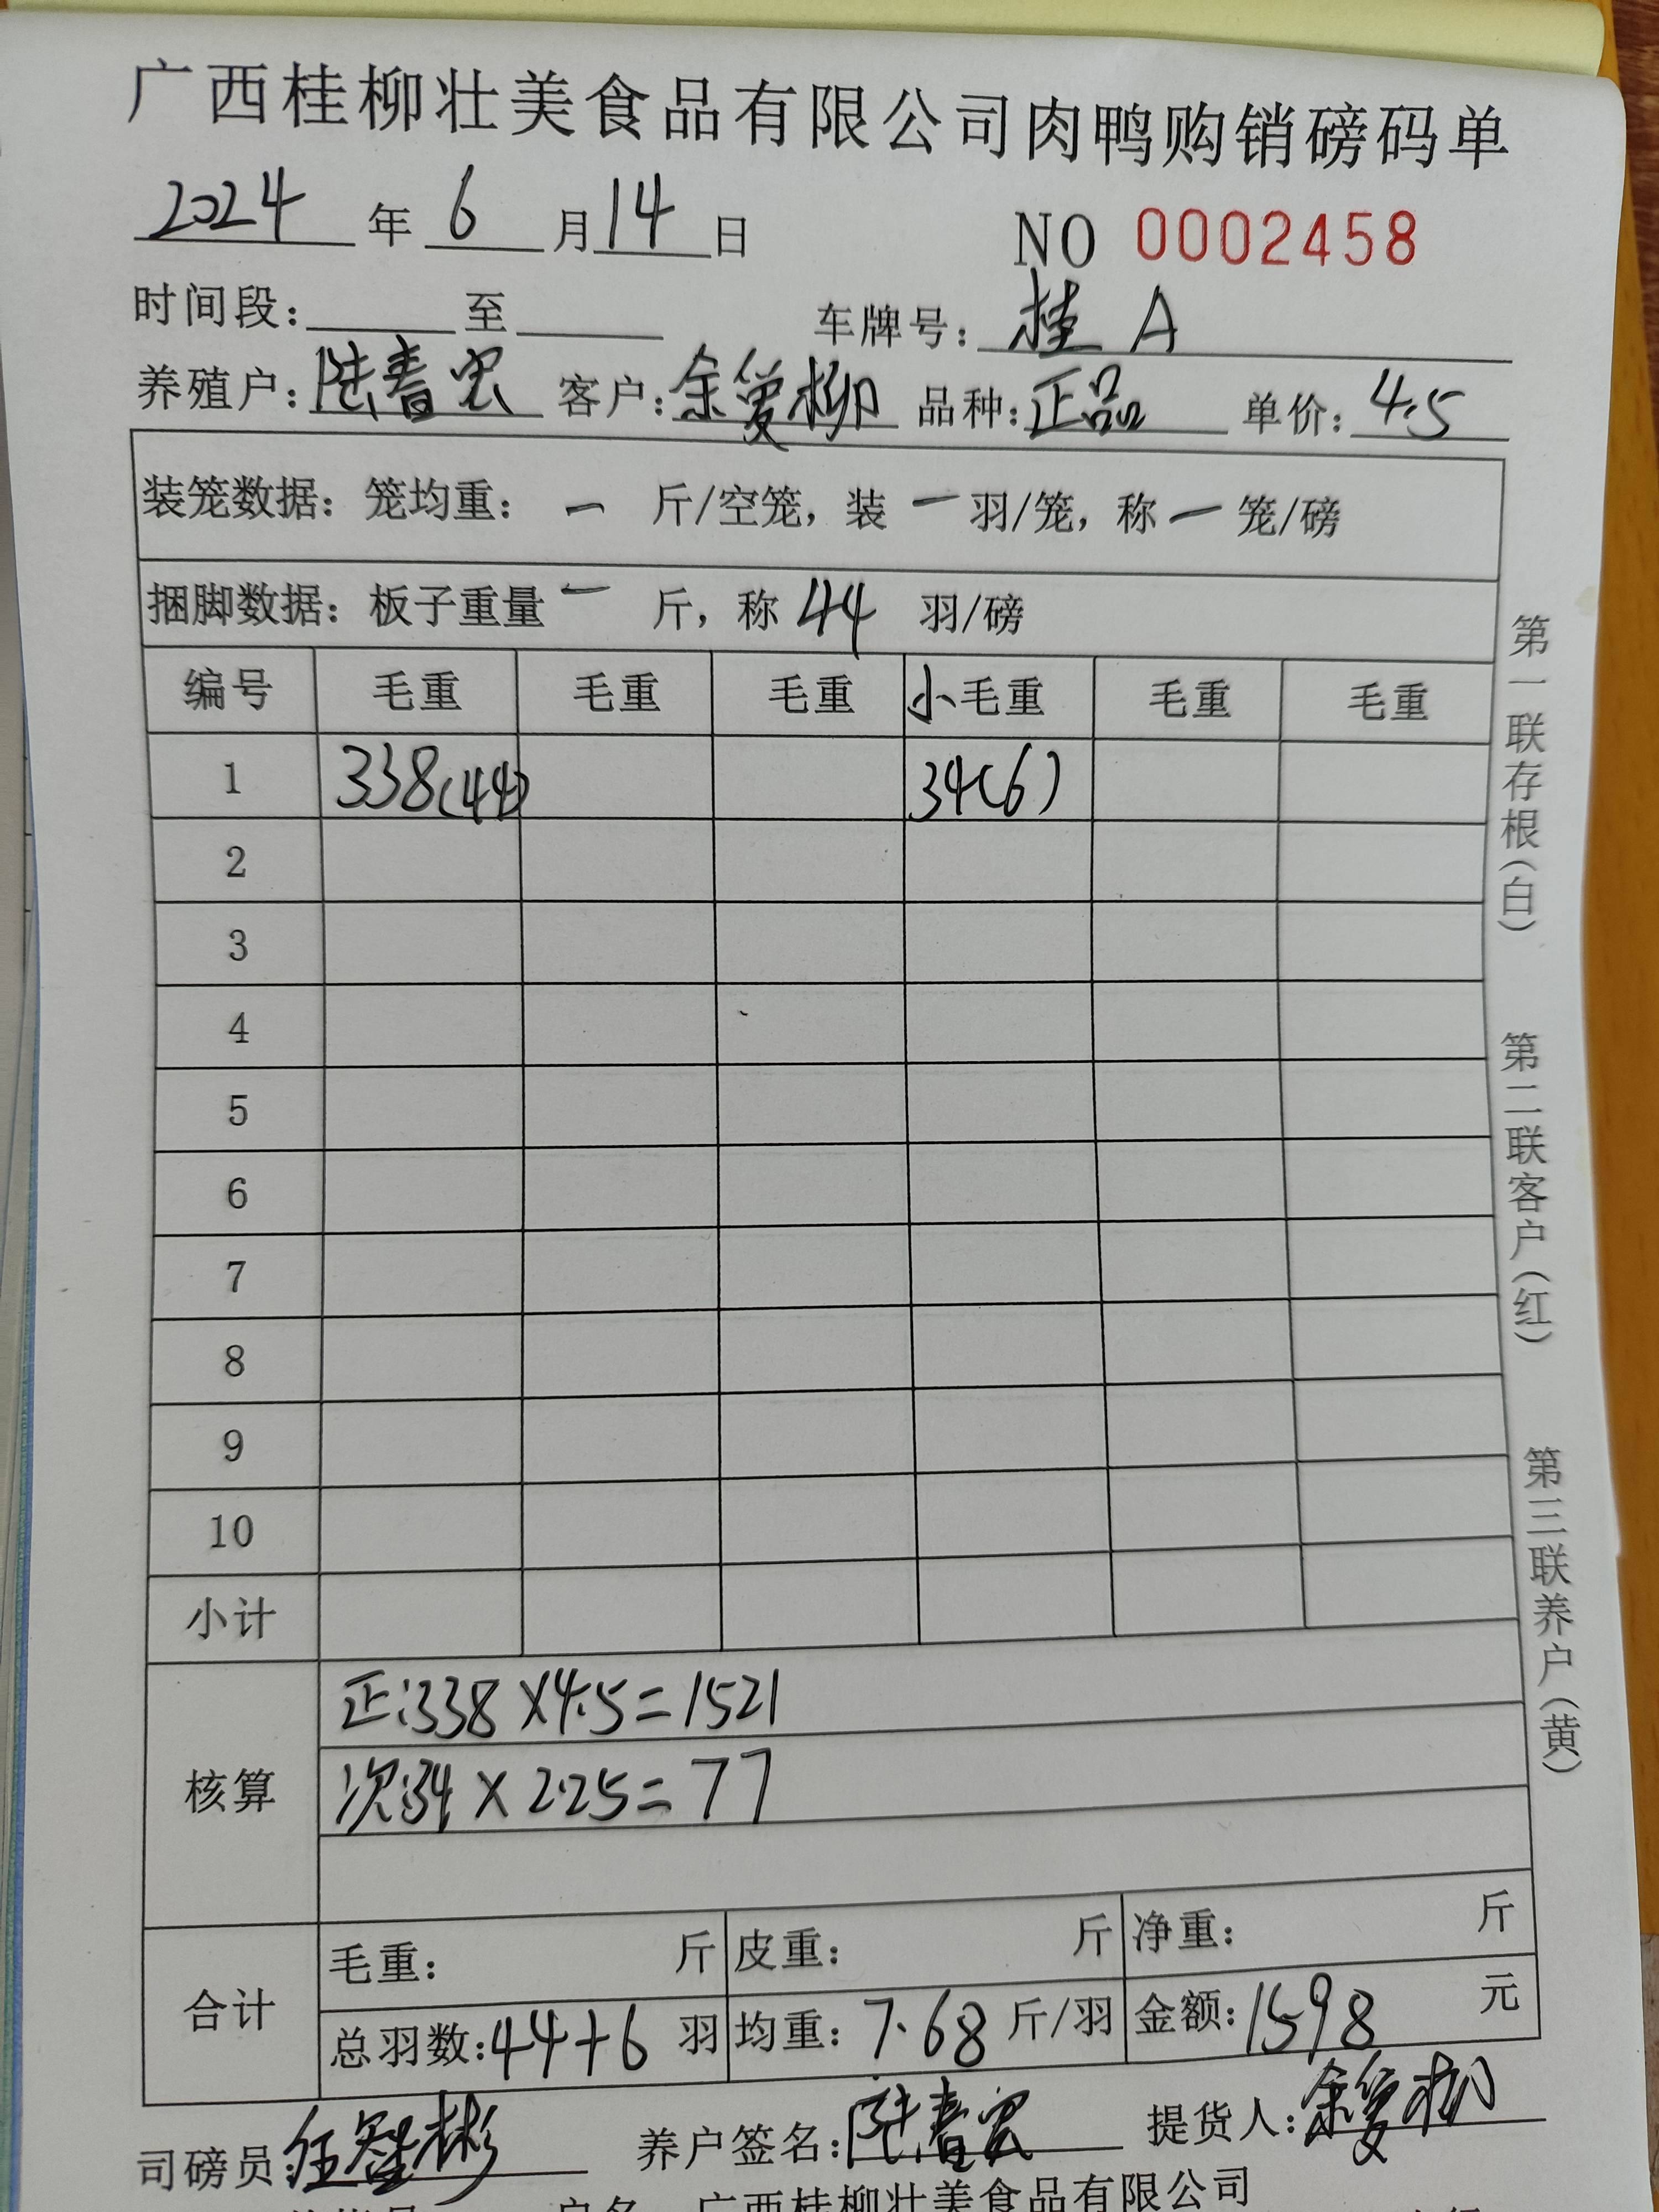 广西桂柳壮美食品有限公司肉鸭购销磅码单
2024 年 6 月 14 日 NO 0002458
时间段: 至 车牌号: 桂 A
养殖户: 陆春 客户: 余爱柳 品种: 正品 单价: 4.5
装笼数据: 笼均重: 一 斤/空笼, 装 一 羽/笼, 称 一 笼/磅
捆脚数据: 板子重量 一 斤, 称 44 羽/磅
编号 毛重 毛重 毛重 小毛重 毛重 毛重
1 338(44) 34(6)
2
3
4
5
6
7
8
9
10
小计
核算
正:338×4.5=1521
次:34×2.25=77
合计
毛重: 斤 皮重: 斤 净重: 斤
总羽数:44+6 羽 均重: 7.68 斤/羽 金额:1598 元
司磅员: 任 彬 养户签名: 陆春 提货人: 余爱柳
户名 广西桂柳壮美食品有限公司
第一联存根(白)
第二联客户(红)
第三联养户(黄)